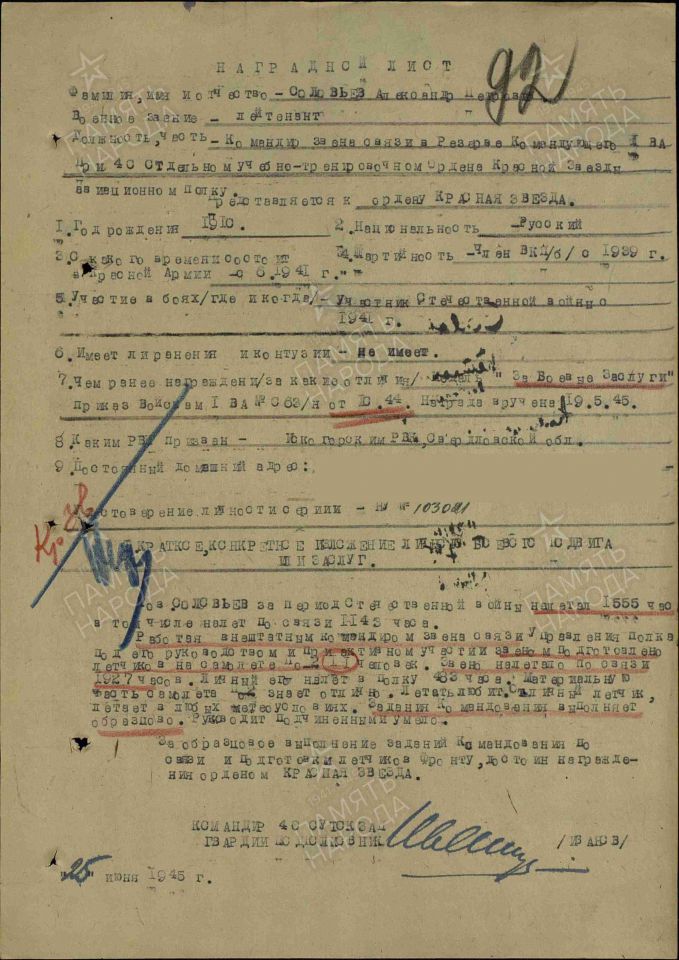 92
НАГРАДНОЙ ЛИСТ
Фамилия, имя и отчество - СОЛОВЬЕВ Александр Петрович
Военное звание - лейтенант
Должность, часть - Командир звена связи в Резерве Командующего I ВА
при 40 Отдельном учебно-тренировочном Ордена Красной Звезды
авиационном полку.
Представляется к ордену КРАСНАЯ ЗВЕЗДА.
1. Год рождения 1910. 2. Национальность - Русский
3. С какого времени состоит 4. Партийность - Член ВКП/б/ с 1939 г.
в Красной Армии - с 6.1941 г.
5. Участие в боях/где и когда/ - участник Отечественной войны с
1941 г.
6. Имеет ли ранения и контузии - не имеет.
7. Чем ранее награжден/за какие отличия/ "За Боевые Заслуги"
приказ Войскам I ВА № 063/н от 10.44. Награда вручена 19.5.45.
8. Каким РВК призван - РВК, Свердловской обл.
9. Постоянный домашний адрес:
Удостоверение личности серии - № 103021
Кр. Зв
КРАТКОЕ, КОНКРЕТНОЕ ИЗЛОЖЕНИЕ ЛИЧНОГО БОЕВОГО ПОДВИГА
ИЛИ ЗАСЛУГ.
Тов СОЛОВЬЕВ за период Отечественной войны налетал 1555 час
в том числе налет по связи 1143 часа.
Работая внештатным командиром звена связи Управления полка
под его руководством и при активном участии звеном подготовлено
летчиков на самолете По-2 11 человек. Звено налетало по связи
1927 часов. Личный его налет в полку 483 часа. Материальную
часть самолета По-2 знает отлично. Летать любит. Отличный летчик,
летает в любых метеоусловиях. Задания Командования выполняет
образцово. Руководит подчиненными умело.
За образцовое выполнение заданий Командования по
связи и подготовки летчиков Фронту, достоин награжде-
ния орденом КРАСНАЯ ЗВЕЗДА.
КОМАНДИР 40 ОУТОКЗАП
ГВАРДИИ ПОДПОЛКОВНИК /ИВАНОВ/
"25" июня 1945 г.
ПАМЯТЬ НАРОДА